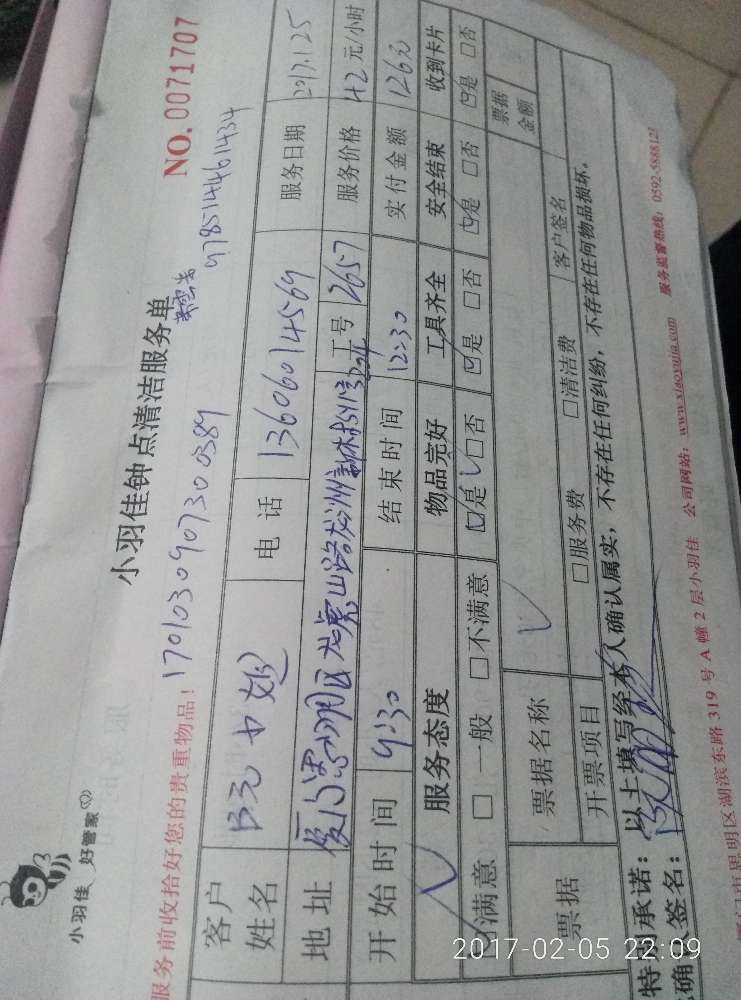 小羽佳 好管家
小羽佳钟点清洁服务单
NO.0071707
服务前收拾好您的贵重物品！
170103090730038
客户姓名
电话 13606014569
服务日期 2017.1.25
地址
工号 2657
服务价格 42元/小时
开始时间 9:30
结束时间 12:30
实付金额 126元
服务态度
物品完好
工具齐全
安全结束
收到卡片
☑满意 □一般 □不满意
☑是 □否
☑是 □否
☑是 □否
☑是 □否
票据
票据名称
票据金额
开票项目
□服务费 □清洁费
客户签名
特别承诺：以上填写经本人确认属实，不存在任何纠纷，不存在任何物品损坏。
确认人签名：
厦门市思明区湖滨东路319号A幢2层小羽佳 公司网站：www.xiaoyujia.com 服务监督热线：0592-5888123
2017-02-05 22:09